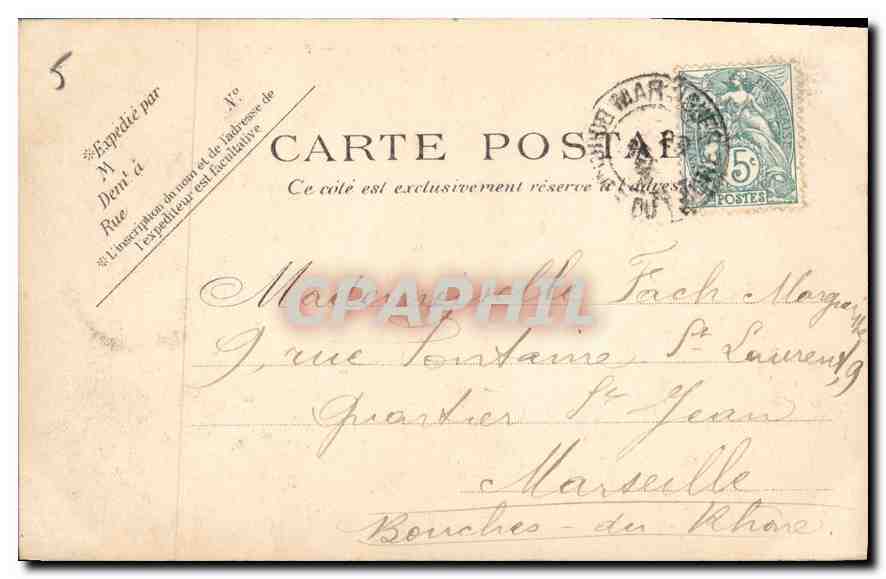 5
*Expédié par
M
Demt à
Rue
N°
*L'inscription du nom et de l'adresse de
l'expéditeur est facultative
CARTE POSTALE
Ce côté est exclusivement réservé à l'adresse
5c
POSTES
CPAPHIL
Mademoiselle Fach
9, rue Fontaine St Laurent, 9
Quartier St Jean
Marseille
Bouches-du-Rhône.